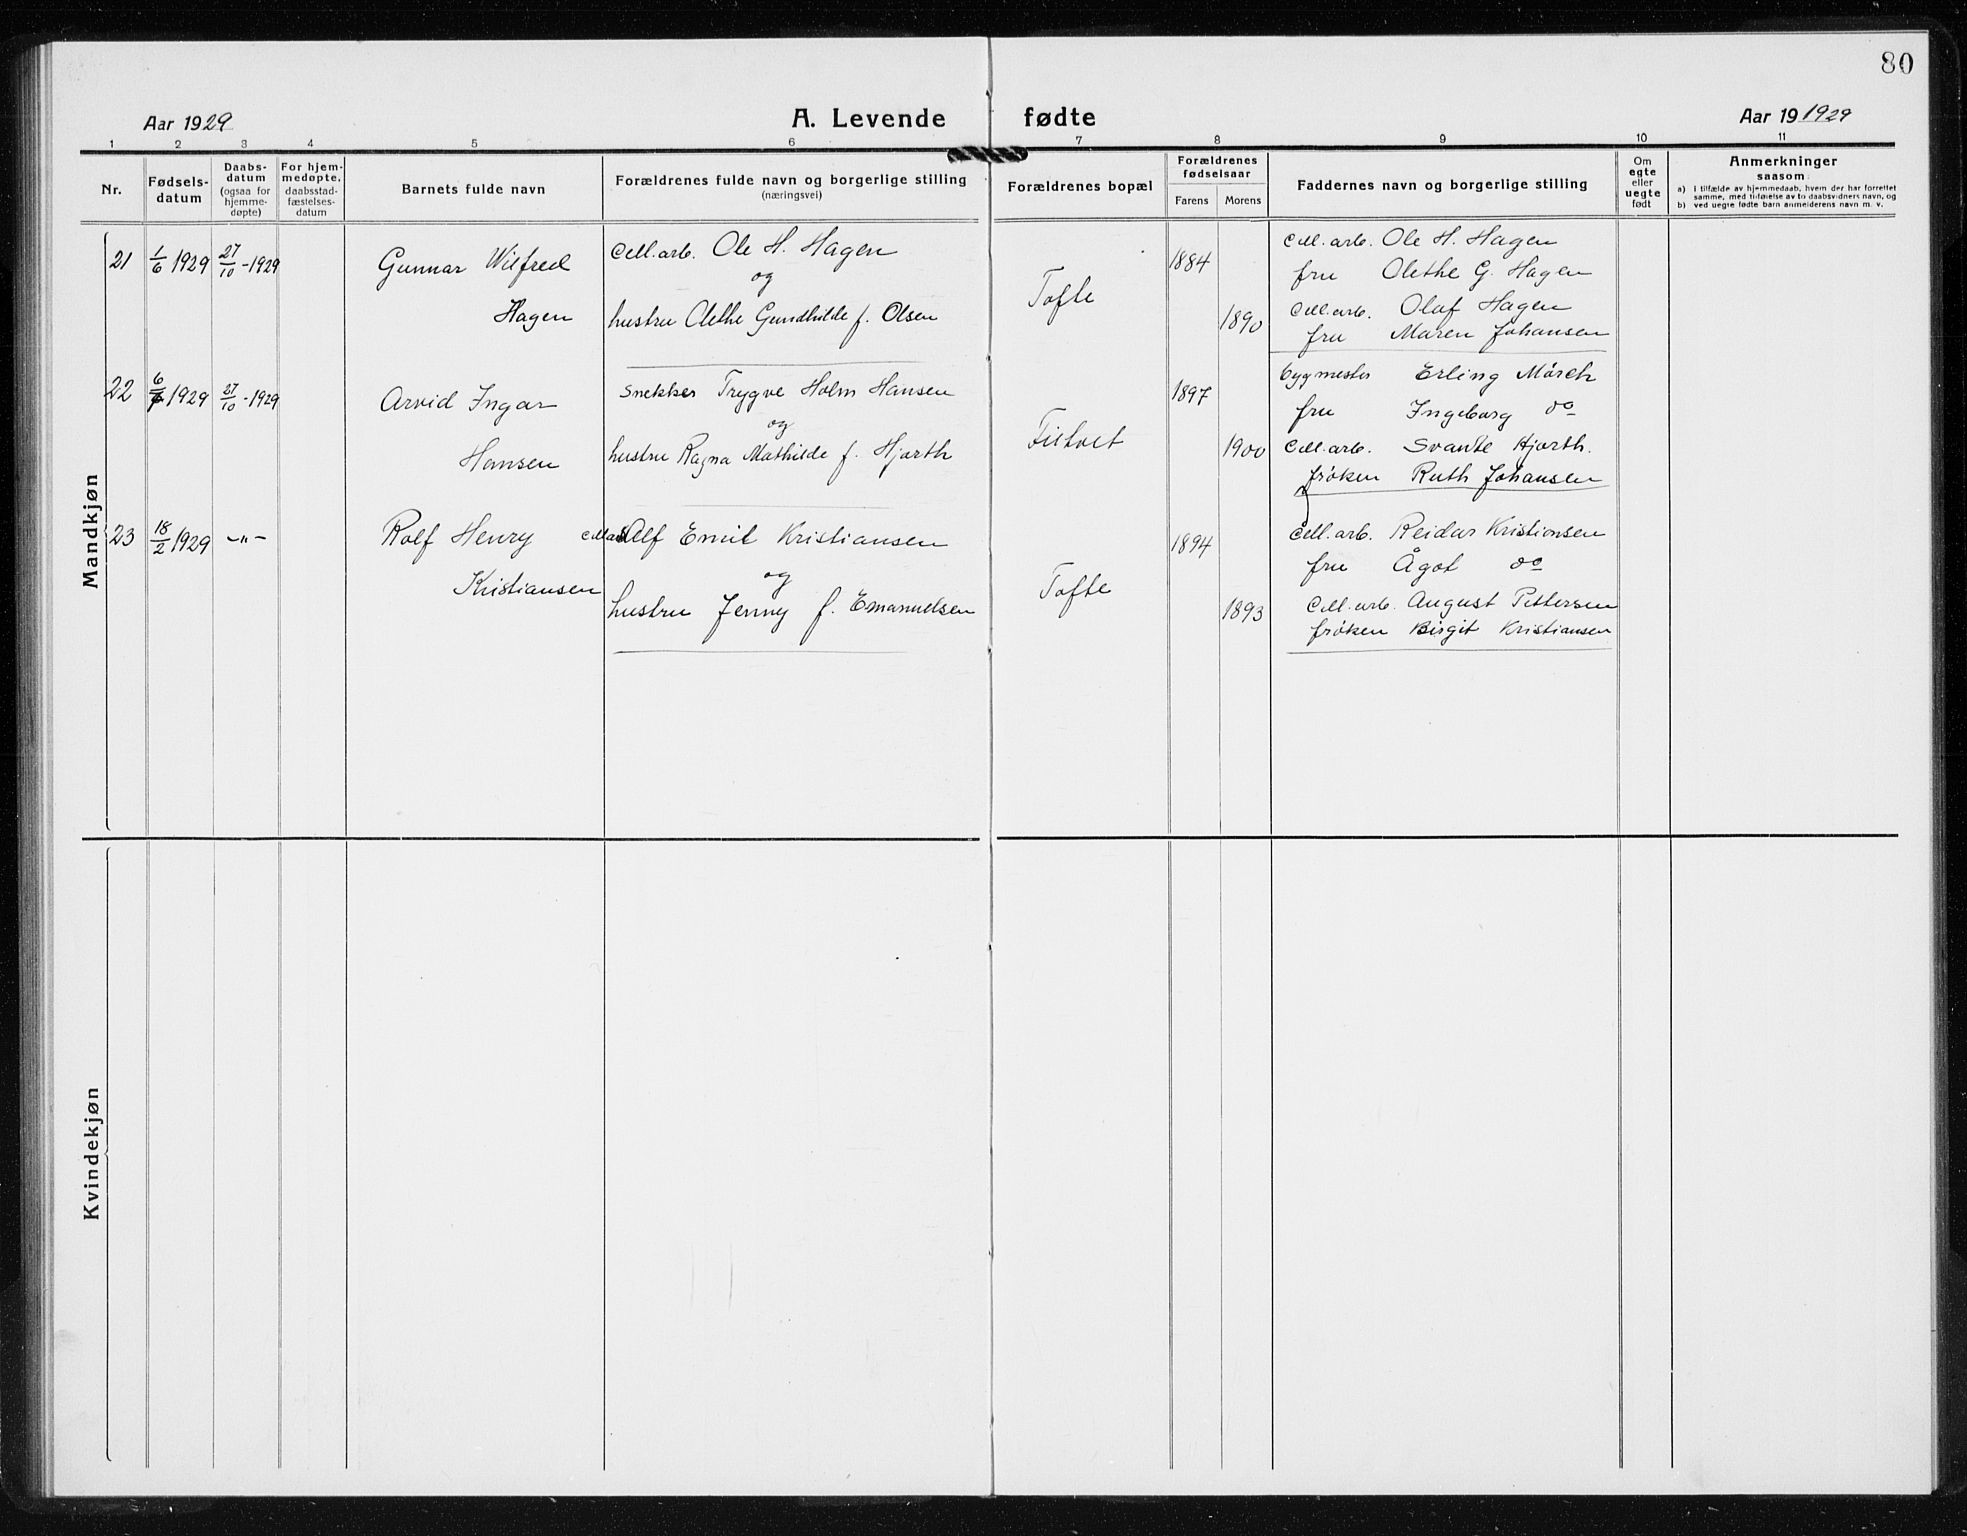 80
Aar 1929
A. Levende fødte
Aar 19 1929
1 2 3 4 5 6 7 8 9 10 11
Nr.
Fødsels-
datum
Daabs-
datum
(ogsaa for
hjemme-
døpte)
For hjem-
medøpte,
daabsstad-
fæstelses-
datum
Barnets fulde navn
Forældrenes fulde navn og borgerlige stilling
(næringsvei)
Forældrenes bopæl
Forældrenes
fødselsaar
Farens Morens
Faddernes navn og borgerlige stilling
Om
egte
eller
uegte
født
Anmerkninger
saasom:
a) i tilfælde av hjemmedaab, hvem der har forrettet
samme, med tilføielse av to daabsvidners navn, og
b) ved uegte fødte barn anmelderens navn m. v.
Mandkjøn
21 1/6 1929 27/10-1929
Gunnar Wilfred
Hagen
Cell.arb. Ole H. Hagen
og
hustru Olethe Gundhilde f. Olsen
Tofte
1884
1890
Cell.arb. Ole H. Hagen
fru Olethe G. Hagen
Cell.arb. Olaf Hagen
fru Maren Johansen
22 1929 27/10-1929
Arvid Ingar
Hansen
Snekker Trygve Holm Hansen
og
hustru Ragna Mathilde f. Hjorth
Filtvet
1897
1900
bygmester Erling Mörch
fru Ingeborg do
Cell.arb. Svante Hjorth.
frøken Ruth Johansen
23 18/2 1929 -"-
Rolf Henry
Kristiansen
Cell.arb. Alf Emil Kristiansen
og
hustru Jenny f. Emanuelsen
Tofte
1894
1893
Cell.arb. Reidar Kristiansen
fru Ågot do
Cell.arb. August Pettersen
frøken Birgit Kristiansen
Kvindekjøn